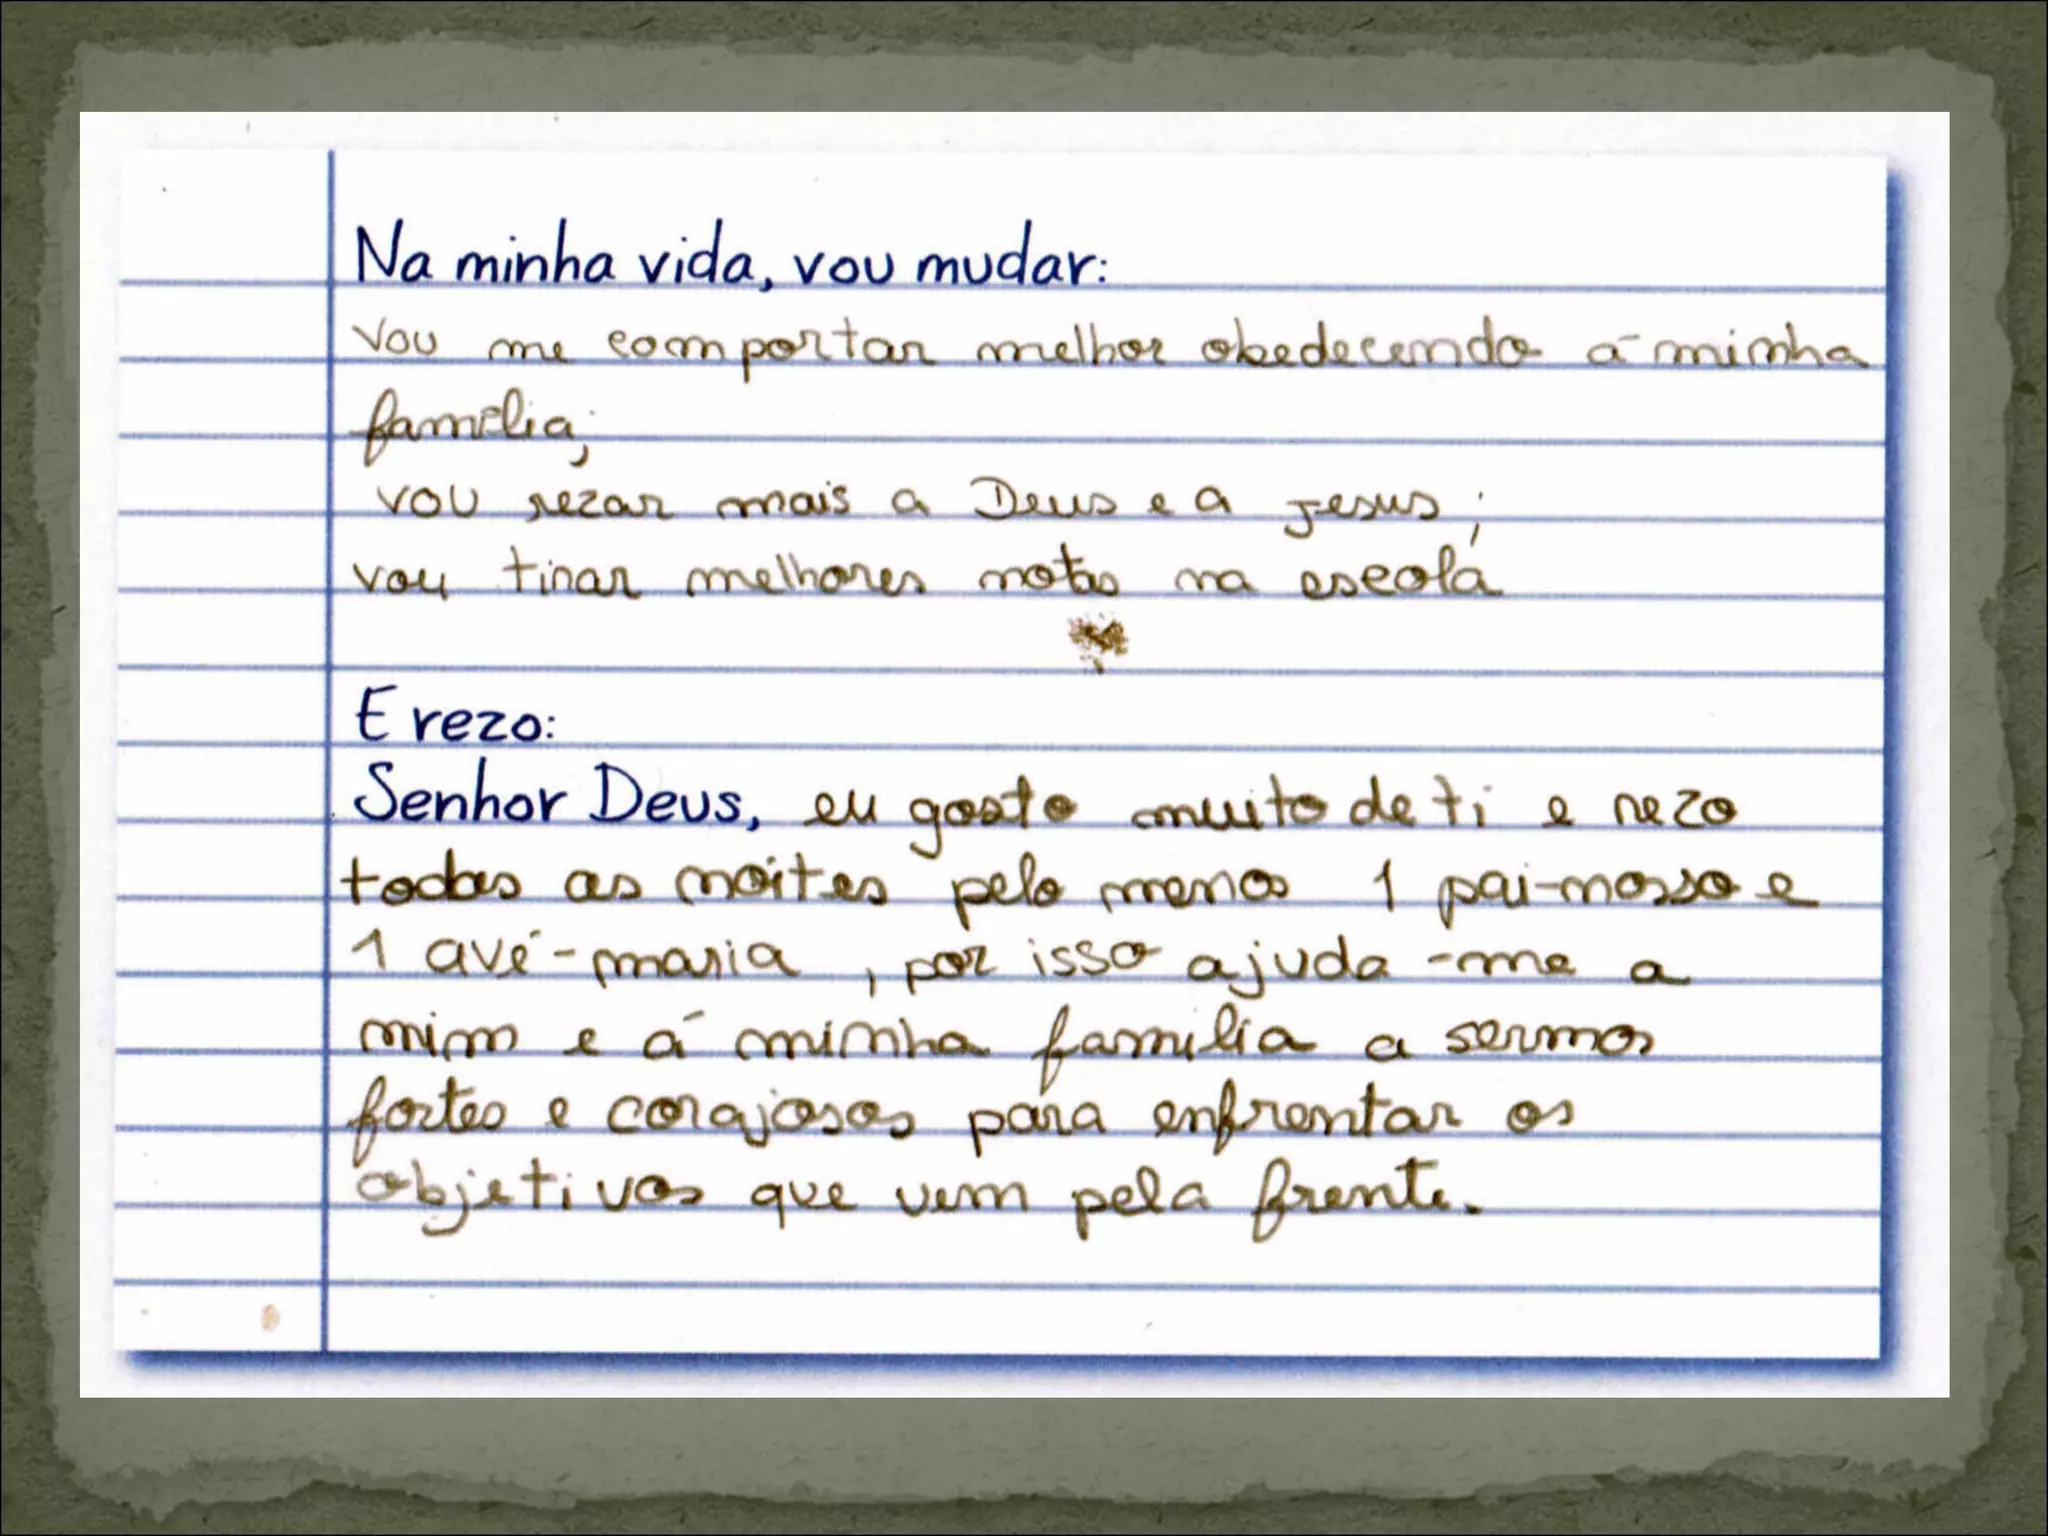 Na minha vida, vou mudar:
vou me comportar melhor obedecendo á minha
família;
vou rezar mais a Deus e a Jesus;
vou tirar melhores notas na escola
E rezo:
Senhor Deus, eu gosto muito de ti e rezo
todas as noites pelo menos 1 pai-nosso e
1 avé-maria, por isso ajuda-me a
mim e á minha família a sermos
fortes e corajosos para enfrentar os
objetivos que vem pela frente.